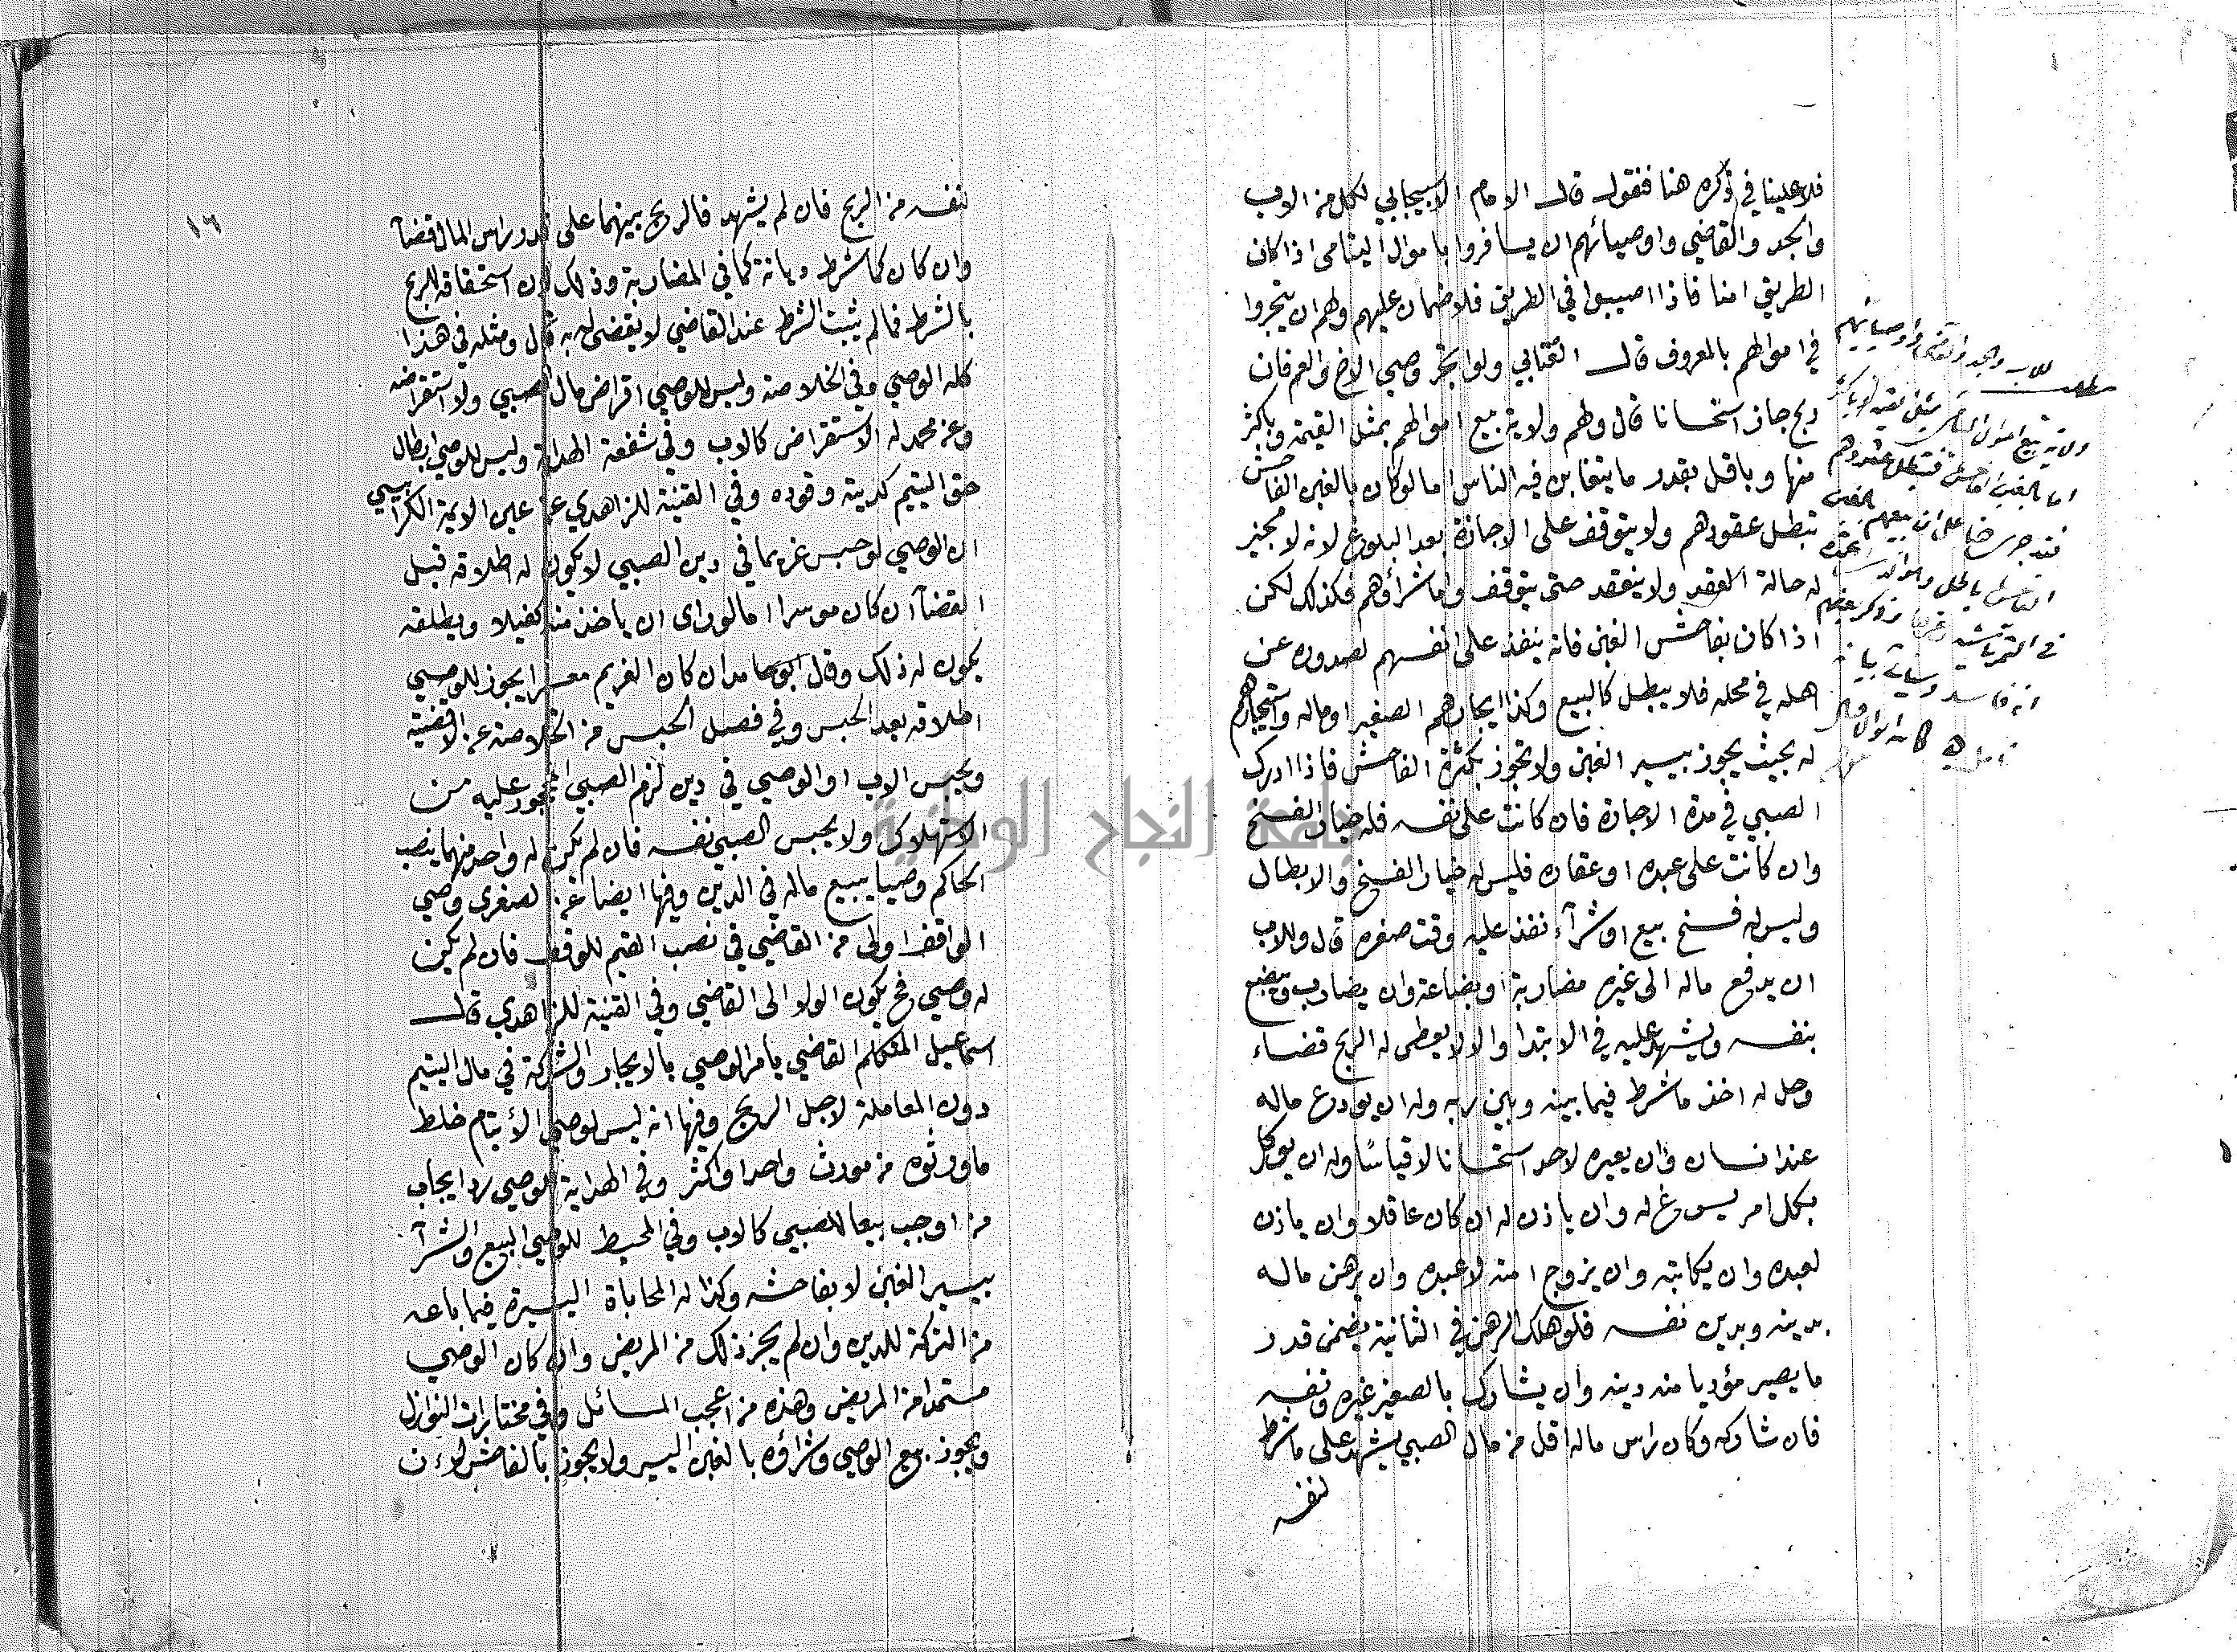 فلا علينا في ذكره هنا فنقول قال الامام الاسبيجابي لكل من الاب
والجد والقاضي واوصيائهم ان يسافروا باموال اليتامى اذا كان
الطريق امنا فاذا اصيبوا في الطريق فلا ضمان عليهم ولهم ان يتجروا
في اموالهم بالمعروف قال العتابي ولو اتجر وصي الاخ والعم فان
ربح جاز استحسانا قال ولهم ولاية بيع اموالهم بمثل القيمة وباكثر
منها وباقل بقدر ما يتغابن فيه الناس اما لو كان بالغبن الفاحش
تبطل عقودهم ولا يتوقف على الاجازة بعد البلوغ لانه لا مجيز
له حالة العقد ولا ينعقد حتى يتوقف واما شراؤهم فكذلك لكن
اذا كان بفاحش الغبن فانه ينفذ على انفسهم لصدوره عن
اهله في محله فلا يبطل كالبيع وكذا ايجارهم الصغير او ماله واستيجارهم
له بحيث يجوز بيسير الغبن ولا تجوز بكثرة الفاحش فاذا ادرك
الصبي في مدة الاجارة فان كانت على نفسه فله خيار الفسخ
وان كانت على عبده او عقاره فليس له خيار الفسخ والابطال
وليس له فسخ بيع او شرآء نفذ عليه وقت صغره قال وللاب
ان يدفع ماله الى غيره مضاربة او بضاعة وان يضارب ويبضع
بنفسه ويشهد عليه في الابتدا والا لا يعطى له الربح قضاء
وحل له اخذ ما شرط فيما بينه وبين ربه وله ان يودع ماله
عند انسان وان يعيره لاحد استحسانا لا قياسا وله ان يوكل
بكل امر يسوغ له وان ياذن له ان كان عاقلا وان ياذن
لعبده وان يكاتبه وان يزوج امته لا عبده وان يرهن ماله
بدينه وبدين نفسه فلو هلك الرهن في الثانية يضمن قدر
ما يصير مؤديا منه دينه وان يشارك بالصغير غيره ونفسه
فان شاركه وكان راس ماله اقل من مال الصبي يشهد على ما شرط
لنفسه
للاب والجد والقاضي واوصيائهم
مطلب
ولاية بيع اموال
١٦
لنفسه من الربح فان لم يشهد فالربح بينهما على قدر راس المال قضآ
وان كان كما شرط ديانة كما في المضاربة وذلك لان استحقاقه للربح
بالشرط فما لم يثبت الشرط عند القاضي لا يقضى له به قال ومثله في هذا
كله الوصي وفي الخلاصة وليس للوصي اقراض مال الصبي ولا استقراضه
وعن محمد له الاستقراض كالاب وفي شفعة الهداية وليس للوصي ابطال
حق اليتيم كديته وقوده وفي القنية للزاهدي عن عين الايمة الكرابيسي
ان الوصي لو حبس غريما في دين الصبي لا يكون له اطلاقه قبل
القضآ ان كان موسرا اما لو راى ان ياخذ منه كفيلا ويطلقه
يكون له ذلك وقال ابو حامد ان كان الغريم معسرا يجوز للوصي
اطلاقه بعد الحبس وفي فصل الحبس من الخلاصة عن الاقضية
ويحبس الاب او الوصي في دين لزم الصبي المحجور عليه من
الاستهلاك ولا يحبس الصبي نفسه فان لم يكن له واحد منهما ينصب
الحاكم وصيا يبيع ماله في الدين وفيها ايضا عن الصغرى وصي
الواقف اولى من القاضي في نصب القيم للوقف فان لم يكن
له وصي فح يكون الولا الى القاضي وفي القنية للزاهدي قال
اسماعيل المتكلم القاضي يامر الوصي بالايجار والشركة في مال اليتيم
دون المعاملة لاجل الربح وفيها انه ليس لوصي الأيتام خلط
ما ورثوه من مورث واحد او اكثر وفي الهداية للوصي رد ايجاب
من اوجب بيعا للصبي كالاب وفي المحيط للوصي البيع والشرآ
بيسير الغبن لا بفاحشه وكذا له المحاباة اليسيرة فيما باعه
من التركة للدين وان لم يجز ذلك من المريض وان كان الوصي
مستمدا من المريض وهذه من اعجب المسائل وفي مختارات النوازل
ويجوز بيع الوصي وشراؤه بالغبن اليسير ولا يجوز بالفاحش لان
جامعة النجاح الوطنية